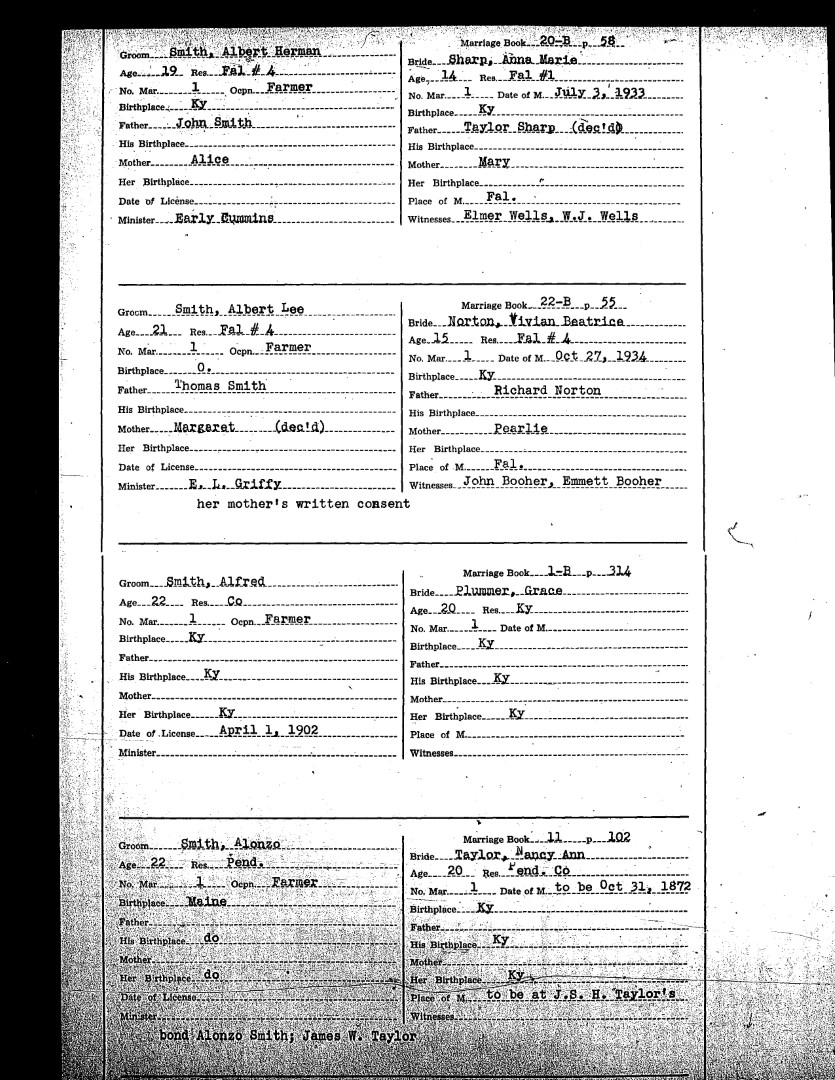 Groom Smith, Albert Herman
Age 19 Res. Fal # 4
No. Mar. 1 Ocpn. Farmer
Birthplace Ky
Father John Smith
His Birthplace
Mother Alice
Her Birthplace
Date of License
Minister Early Cummins
Marriage Book 20-B p. 58
Bride Sharp, Anna Marie
Age 14 Res. Fal #1
No. Mar. 1 Date of M. July 3, 1933
Birthplace Ky
Father Taylor Sharp (dec'd)
His Birthplace
Mother Mary
Her Birthplace
Place of M. Fal.
Witnesses Elmer Wells, W.J. Wells
Groom Smith, Albert Lee
Age 21 Res. Fal # 4
No. Mar. 1 Ocpn. Farmer
Birthplace O.
Father Thomas Smith
His Birthplace
Mother Margaret (dec'd)
Her Birthplace
Date of License
Minister E. L. Griffy
her mother's written consent
Marriage Book 22-B p. 55
Bride Norton, Vivian Beatrice
Age 15 Res. Fal # 4
No. Mar. 1 Date of M. Oct 27, 1934
Birthplace Ky
Father Richard Norton
His Birthplace
Mother Pearlie
Her Birthplace
Place of M. Fal.
Witnesses John Booher, Emmett Booher
Groom Smith, Alfred
Age 22 Res. Co
No. Mar. 1 Ocpn. Farmer
Birthplace Ky
Father
His Birthplace Ky
Mother
Her Birthplace Ky
Date of License April 1, 1902
Minister
Marriage Book 1-B p. 314
Bride Plummer, Grace
Age 20 Res. Ky
No. Mar. 1 Date of M.
Birthplace Ky
Father
His Birthplace Ky
Mother
Her Birthplace Ky
Place of M.
Witnesses
Groom Smith, Alonzo
Age 22 Res. Pend.
No. Mar. 1 Ocpn. Farmer
Birthplace Maine
Father
His Birthplace do
Mother
Her Birthplace do
Date of License
Minister
bond Alonzo Smith; James W. Taylor
Marriage Book 11 p. 102
Bride Taylor, Nancy Ann
Age 20 Res. Pend. Co
No. Mar. 1 Date of M. to be Oct 31, 1872
Birthplace Ky
Father
His Birthplace Ky
Mother
Her Birthplace Ky
Place of M. to be at J.S. H. Taylor's
Witnesses